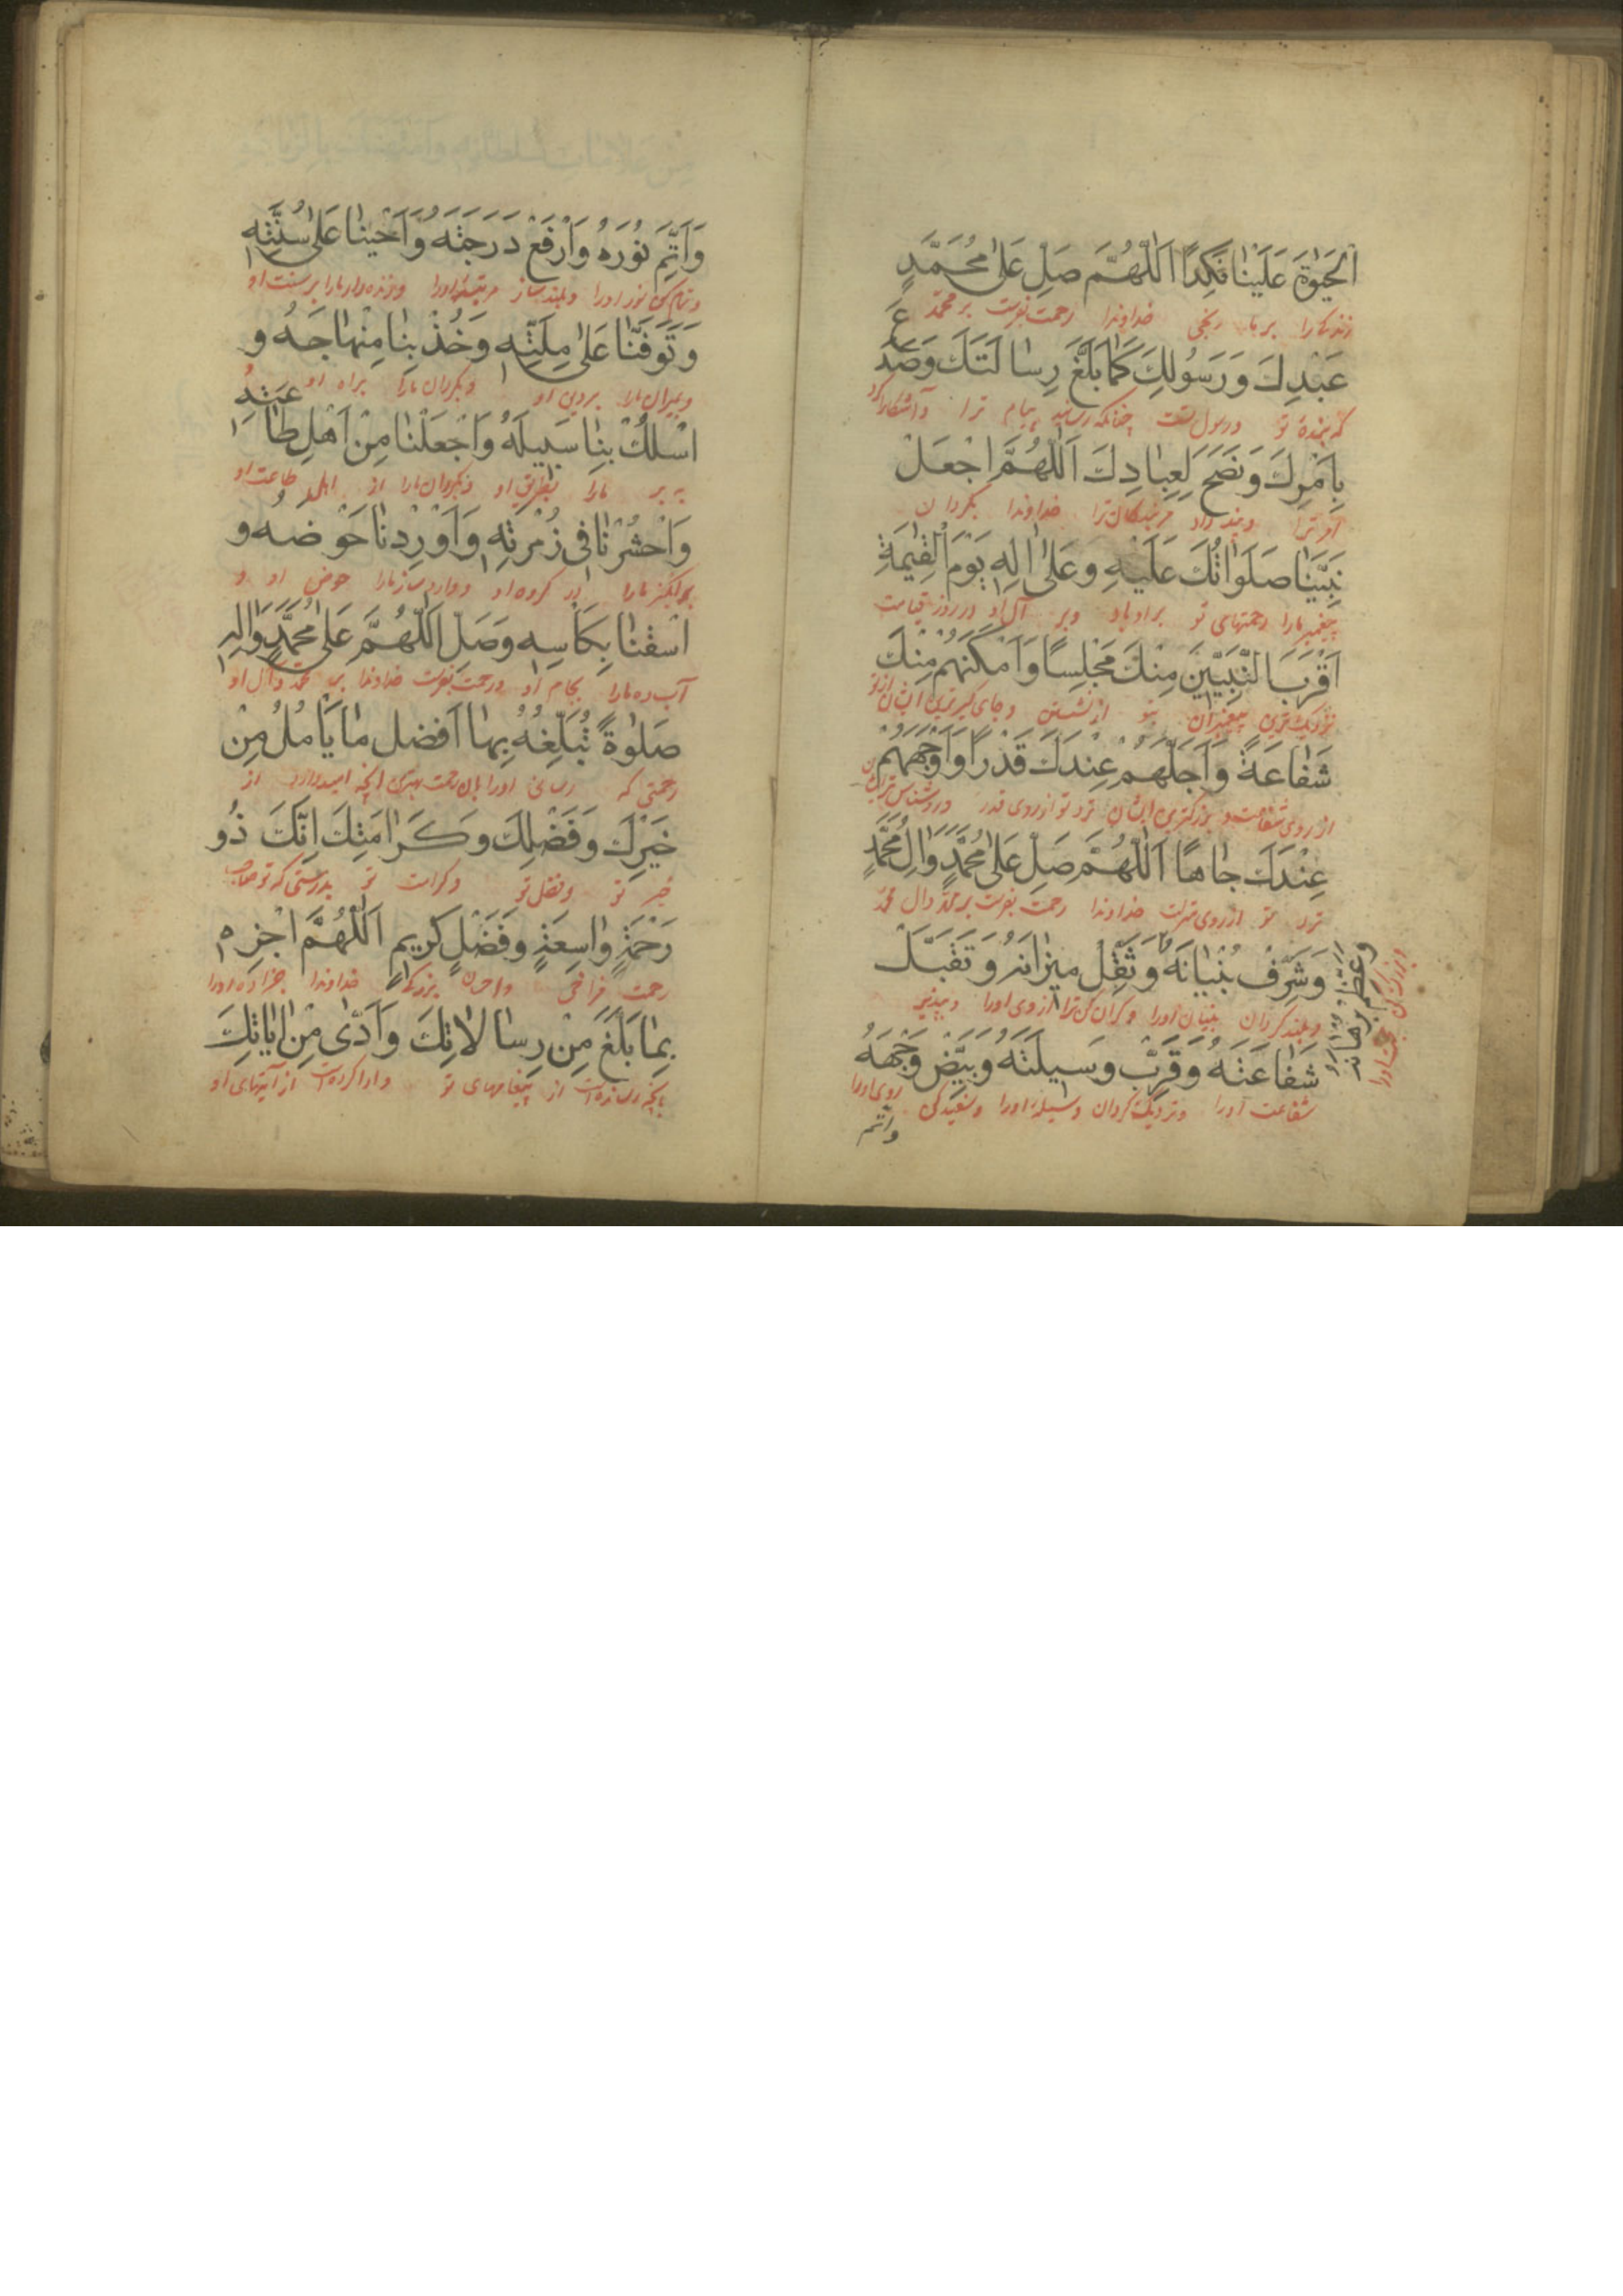 اَلْحَيٰوةَ عَلَيْنٰا نَكِدًا اَللّٰهُمَّ صَلِّ عَلىٰ مُحَمَّدٍ
زندگانی را بر ما رنجی خداوندا رحمت بفرست بر محمّد
عَبْدِكَ وَرَسُولِكَ كَمٰا بَلَّغَ رِسٰالَتَكَ وَصَدَعَ
که بندهٔ تو و رسول تست چنانکه رسانید پیام ترا و آشکارا کرد
بِاَمْرِكَ وَنَصَحَ لِعِبٰادِكَ اَللّٰهُمَّ اجْعَلْ
امر ترا و پند داد مر بندگان ترا خداوندا بگردان
نَبِيَّنٰا صَلَوٰاتُكَ عَلَيْهِ وَعَلىٰ اٰلِهِ يَوْمَ الْقِيٰمَةِ
پیغمبر ما را رحمتهای تو بر او باد و بر آل او در روز قیامت
اَقْرَبَ النَّبِيّينَ مِنْكَ مَجْلِسًا وَاَمْكَنَهُمْ مِنْكَ
نزدیک‌ترین پیغمبران بتو از نشستن و جای گیرترین ایشان از تو
شَفٰاعَةً وَاَجَلَّهُمْ عِنْدَكَ قَدْرًا وَاَوْجَهَهُمْ
از روی شفاعت و بزرگترین ایشان نزد تو از روی قدر و روشناس‌ترین ایشان
عِنْدَكَ جٰاهًا اَللّٰهُمَّ صَلِّ عَلىٰ مُحَمَّدٍ وَاٰلِ مُحَمَّدٍ
نزد تو از روی منزلت خداوندا رحمت بفرست بر محمّد و آل محمّد
وَشَرِّفْ بُنْيٰانَهُ وَثَقِّلْ ميزٰانَهُ وَتَقَبَّلْ
و بلند گردان بنیان اورا و گران کن ترازوی اورا و بپذیر
وَعَظِّمْ بُرْهٰانَهُ
و بزرگ کن حجت اورا
شَفٰاعَتَهُ وَقَرِّبْ وَسيلَتَهُ وَبَيِّضْ وَجْهَهُ
شفاعت اورا و نزدیک گردان وسیلهٔ اورا و سفید کن روی اورا
واتم
وَاَتِمَّ نُورَهُ وَارْفَعْ دَرَجَتَهُ وَاَحْيِنٰا عَلىٰ سُنَّتِهِ
و تمام کن نور اورا و بلند ساز مرتبهٔ اورا و زنده دار ما را بر سنت او
وَتَوَفَّنٰا عَلىٰ مِلَّتِهِ وَخُذْ بِنٰا مِنْهٰاجَهُ وَ
و بمیران ما را بر دین او و بگردان ما را براه او و
اسْلُكْ بِنٰا سَبيلَهُ وَاجْعَلْنٰا مِنْ اَهْلِ طٰاعَتِهِ
ببر ما را بطریق او و بگردان ما را از اهل طاعت او
وَاحْشُرْنٰا فى زُمْرَتِهِ وَاَوْرِدْنٰا حَوْضَهُ وَ
برانگیز ما را در گروه او و وارد ساز ما را حوض او و
اسْقِنٰا بِكَاْسِهِ وَصَلِّ اَللّٰهُمَّ عَلىٰ مُحَمَّدٍ وَاٰلِهِ
آب ده ما را بجام او و رحمت بفرست خداوندا بر محمد و آل او
صَلٰوةً تُبَلِّغُهُ بِهٰا اَفْضَلَ مٰا يَأْمُلُ مِنْ
رحمتی که رسانی اورا بان رحمت بهترین آنچه امید دارد از
خَيْرِكَ وَفَضْلِكَ وَكَرٰامَتِكَ اِنَّكَ ذُو
خیر تو و فضل تو و کرامت تو بدرستی که تو صاحب
رَحْمَةٍ وٰاسِعَةٍ وَفَضْلٍ كَريمٍ اَللّٰهُمَّ اجْزِهِ
رحمت فراخی و احسان بزرگ خداوندا جزا ده اورا
بِمٰا بَلَّغَ مِنْ رِسٰالاٰتِكَ وَاَدّٰى مِنْ اٰيٰاتِكَ
بآنچه رسانده است از پیغامهای تو و ادا کرده است از آیتهای او